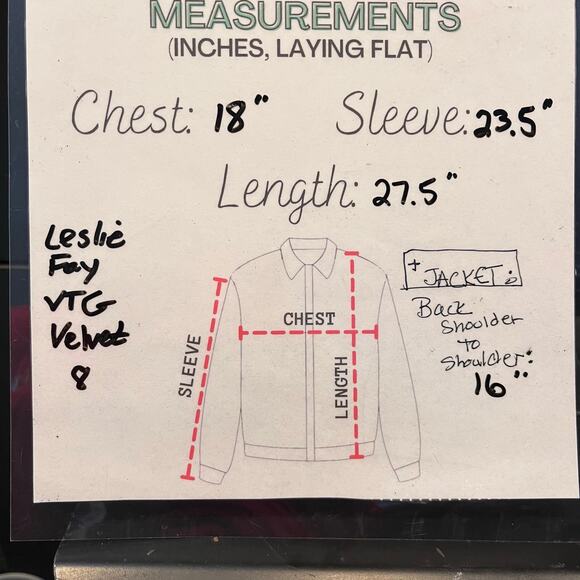 MEASUREMENTS
(INCHES, LAYING FLAT)
Chest: 18"
Sleeve: 23.5"
Length: 27.5"
Leslie
Fay
VTG
Velvet
8
CHEST
SLEEVE
LENGTH
+ JACKET:
Back
Shoulder
to
Shoulder:
16"